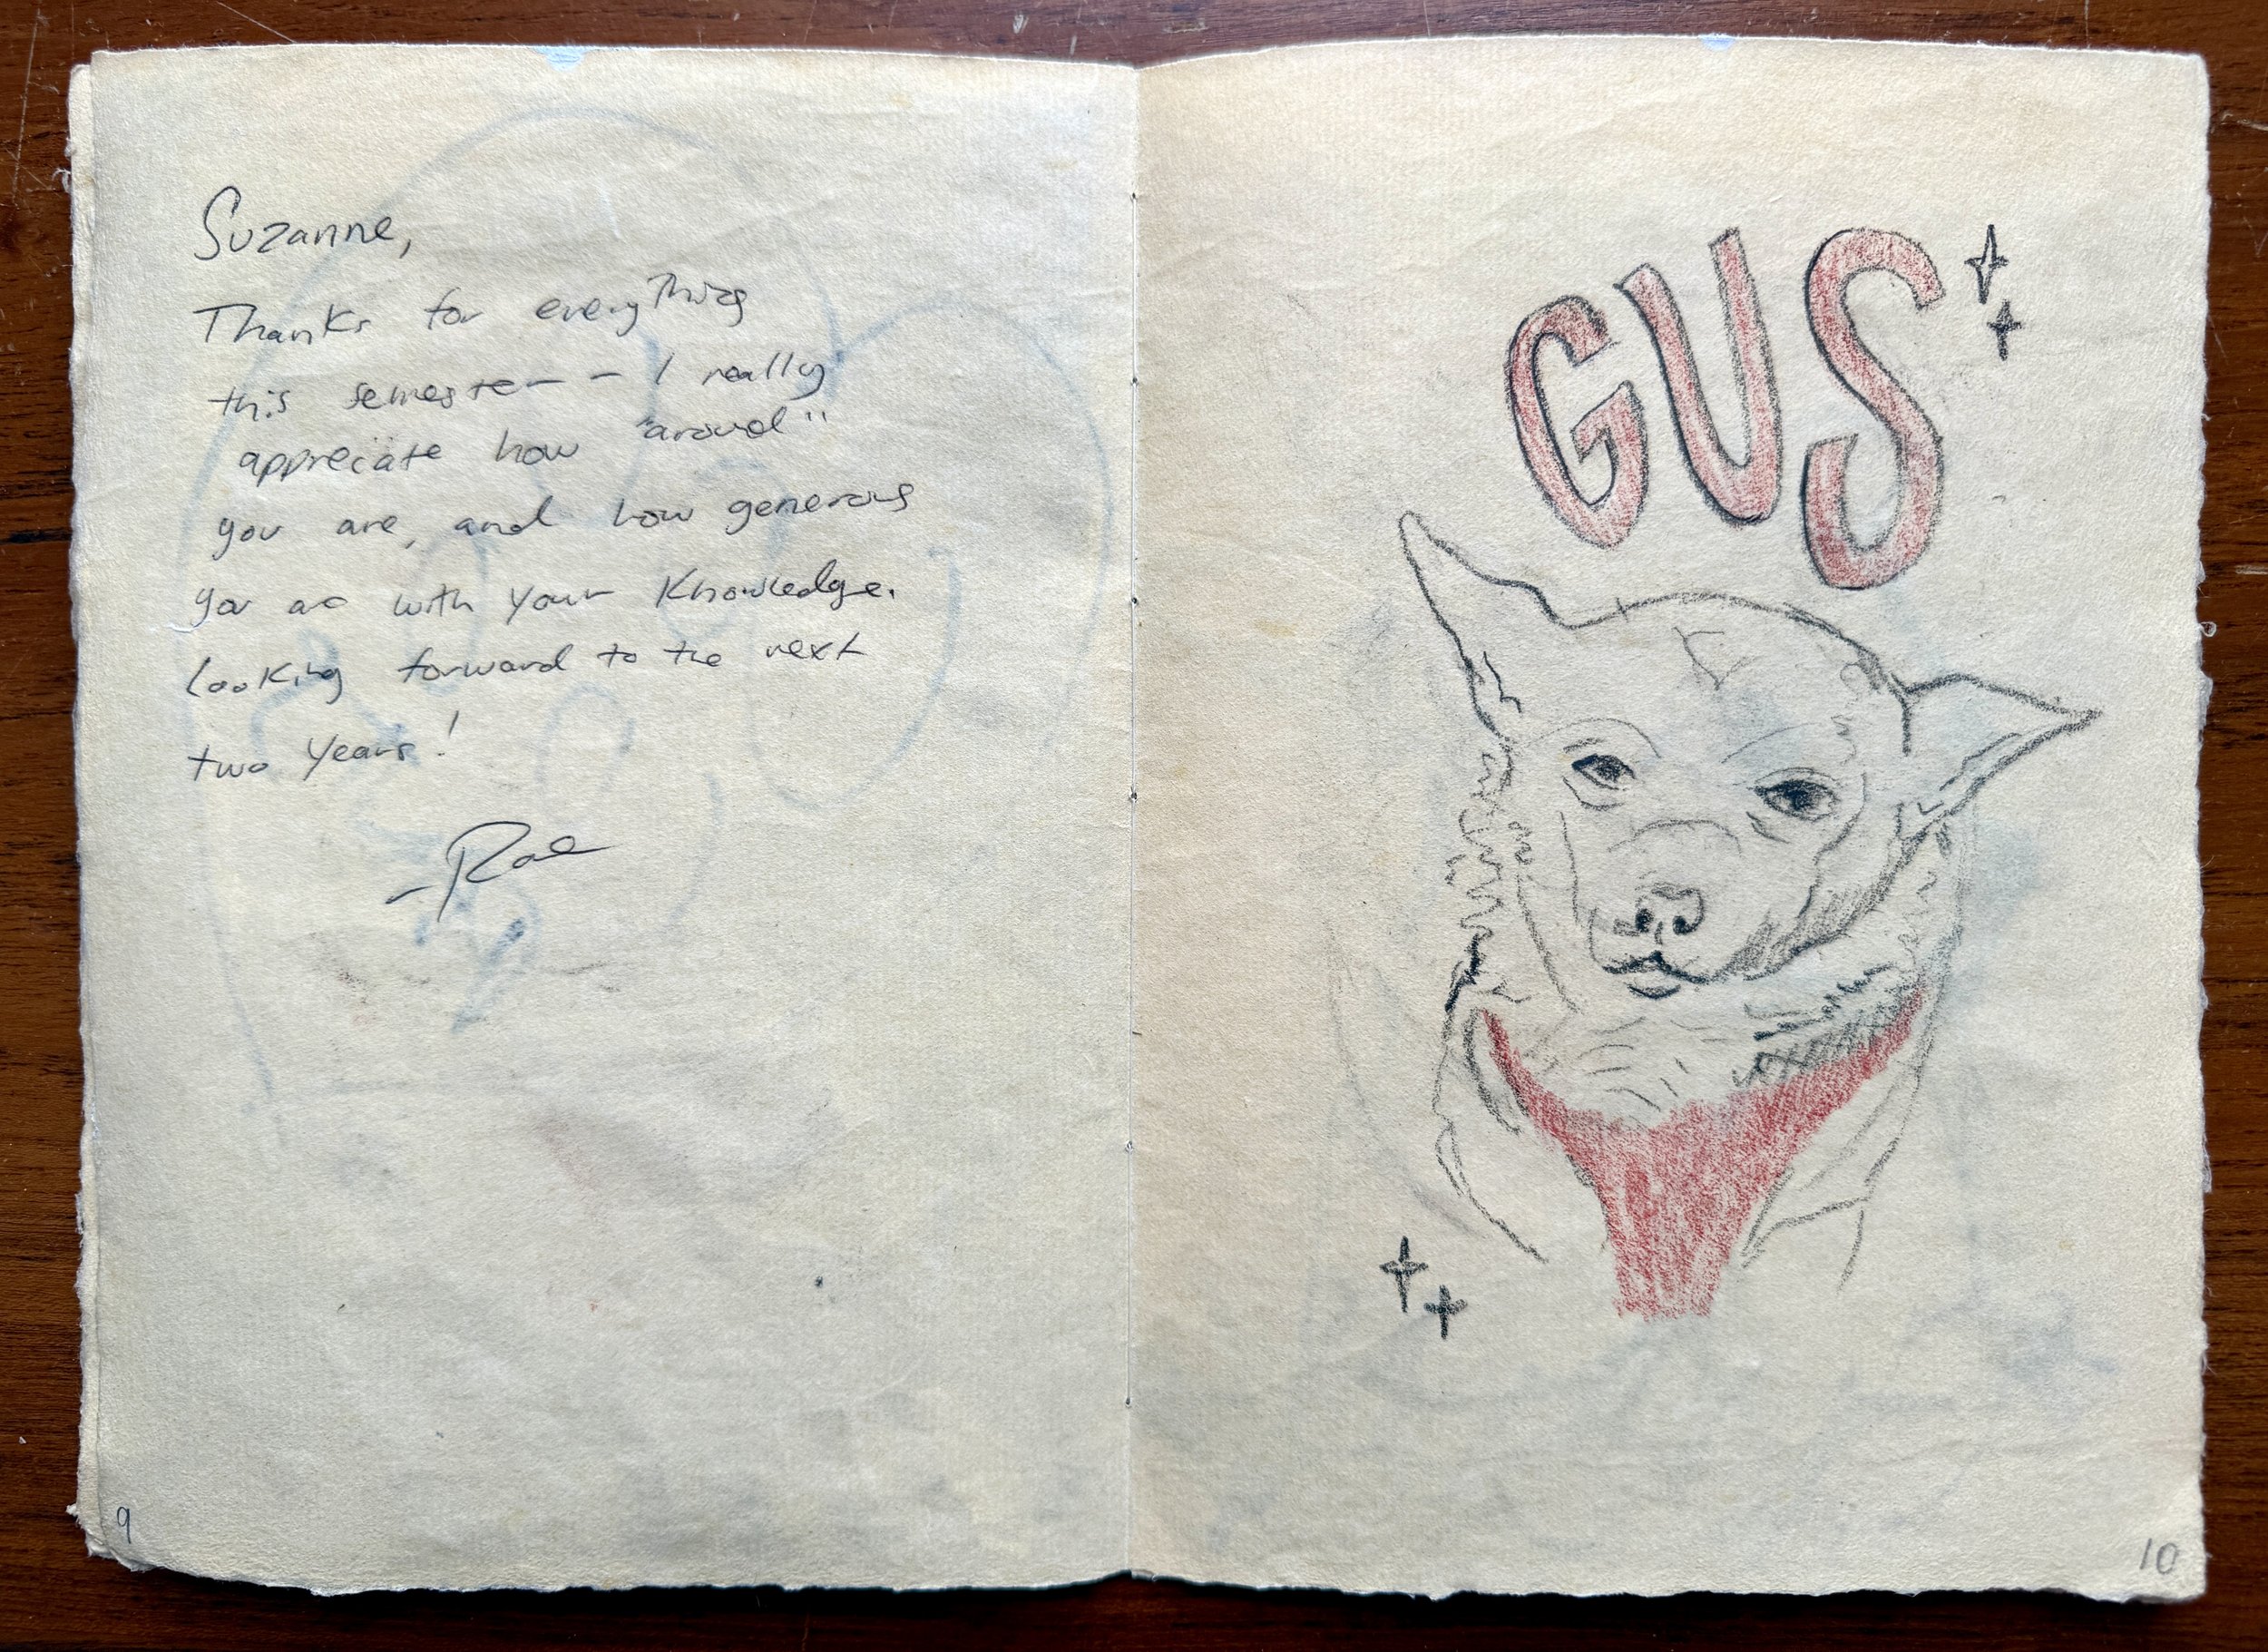 Suzanne,
Thanks for everything
this semester - I really
appreciate how "around"
you are, and how generous
you are with your knowledge.
Looking forward to the next
two years!
- Rae
9
GUS
10